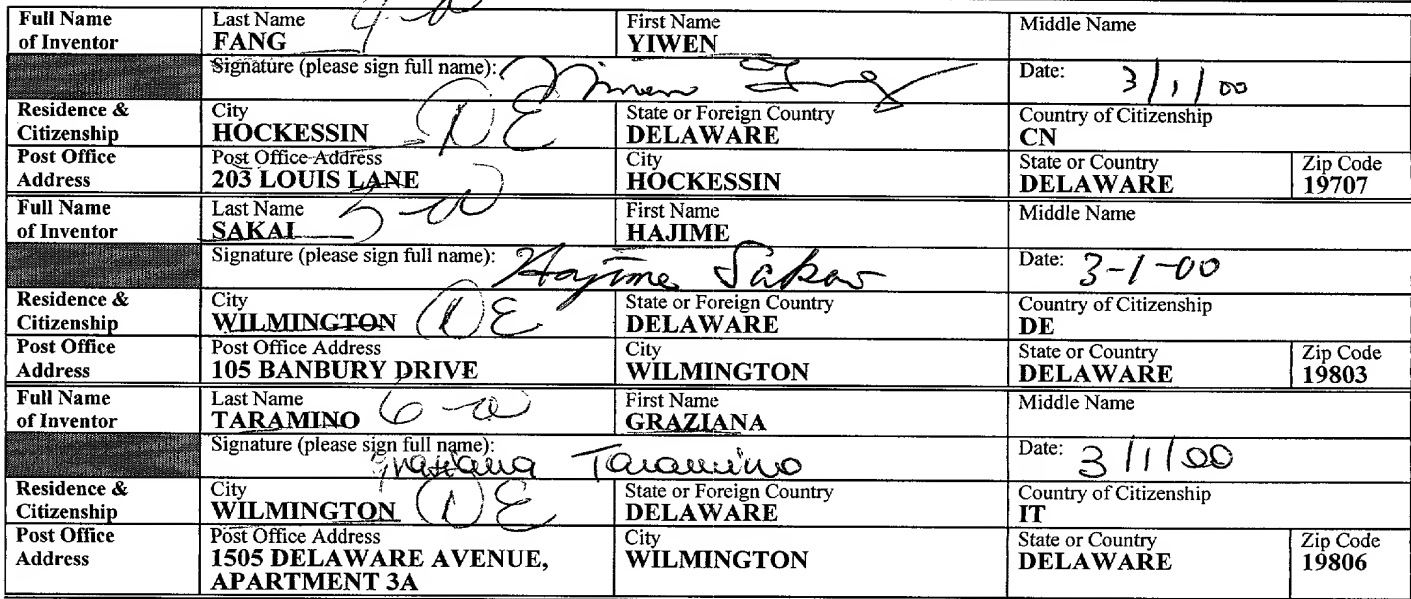 Full Name of Inventor Last Name FANG 4-00 First Name YIWEN Middle Name
Signature (please sign full name): Yiwen Fang Date: 3/1/00
Residence & Citizenship City HOCKESSIN DE State or Foreign Country DELAWARE Country of Citizenship CN
Post Office Address Post Office Address 203 LOUIS LANE City HOCKESSIN State or Country DELAWARE Zip Code 19707
Full Name of Inventor Last Name SAKAI 5-00 First Name HAJIME Middle Name
Signature (please sign full name): Hajime Sakai Date: 3-1-00
Residence & Citizenship City WILMINGTON DE State or Foreign Country DELAWARE Country of Citizenship DE
Post Office Address Post Office Address 105 BANBURY DRIVE City WILMINGTON State or Country DELAWARE Zip Code 19803
Full Name of Inventor Last Name TARAMINO 6-00 First Name GRAZIANA Middle Name
Signature (please sign full name): Graziana Taramino Date: 3/1/00
Residence & Citizenship City WILMINGTON DE State or Foreign Country DELAWARE Country of Citizenship IT
Post Office Address Post Office Address 1505 DELAWARE AVENUE, APARTMENT 3A City WILMINGTON State or Country DELAWARE Zip Code 19806